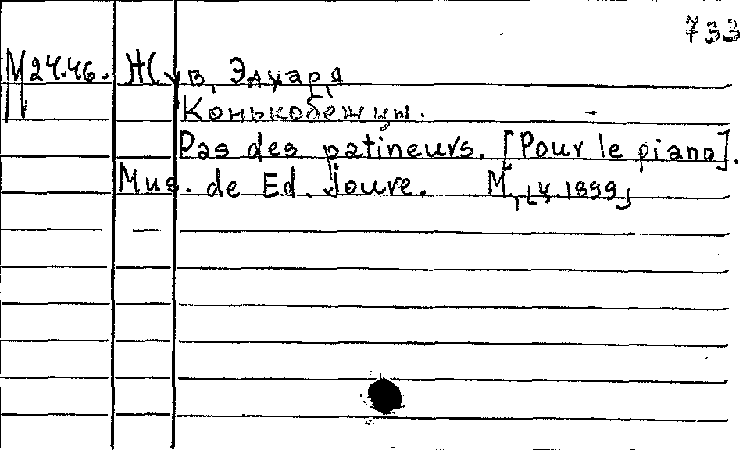 733
М 24.46. Жув, Эдуард
Конькобежцы.
Pas des patineurs. [Pour le piano].
Mus. de Ed. Jouve. М., [ц. 1899]